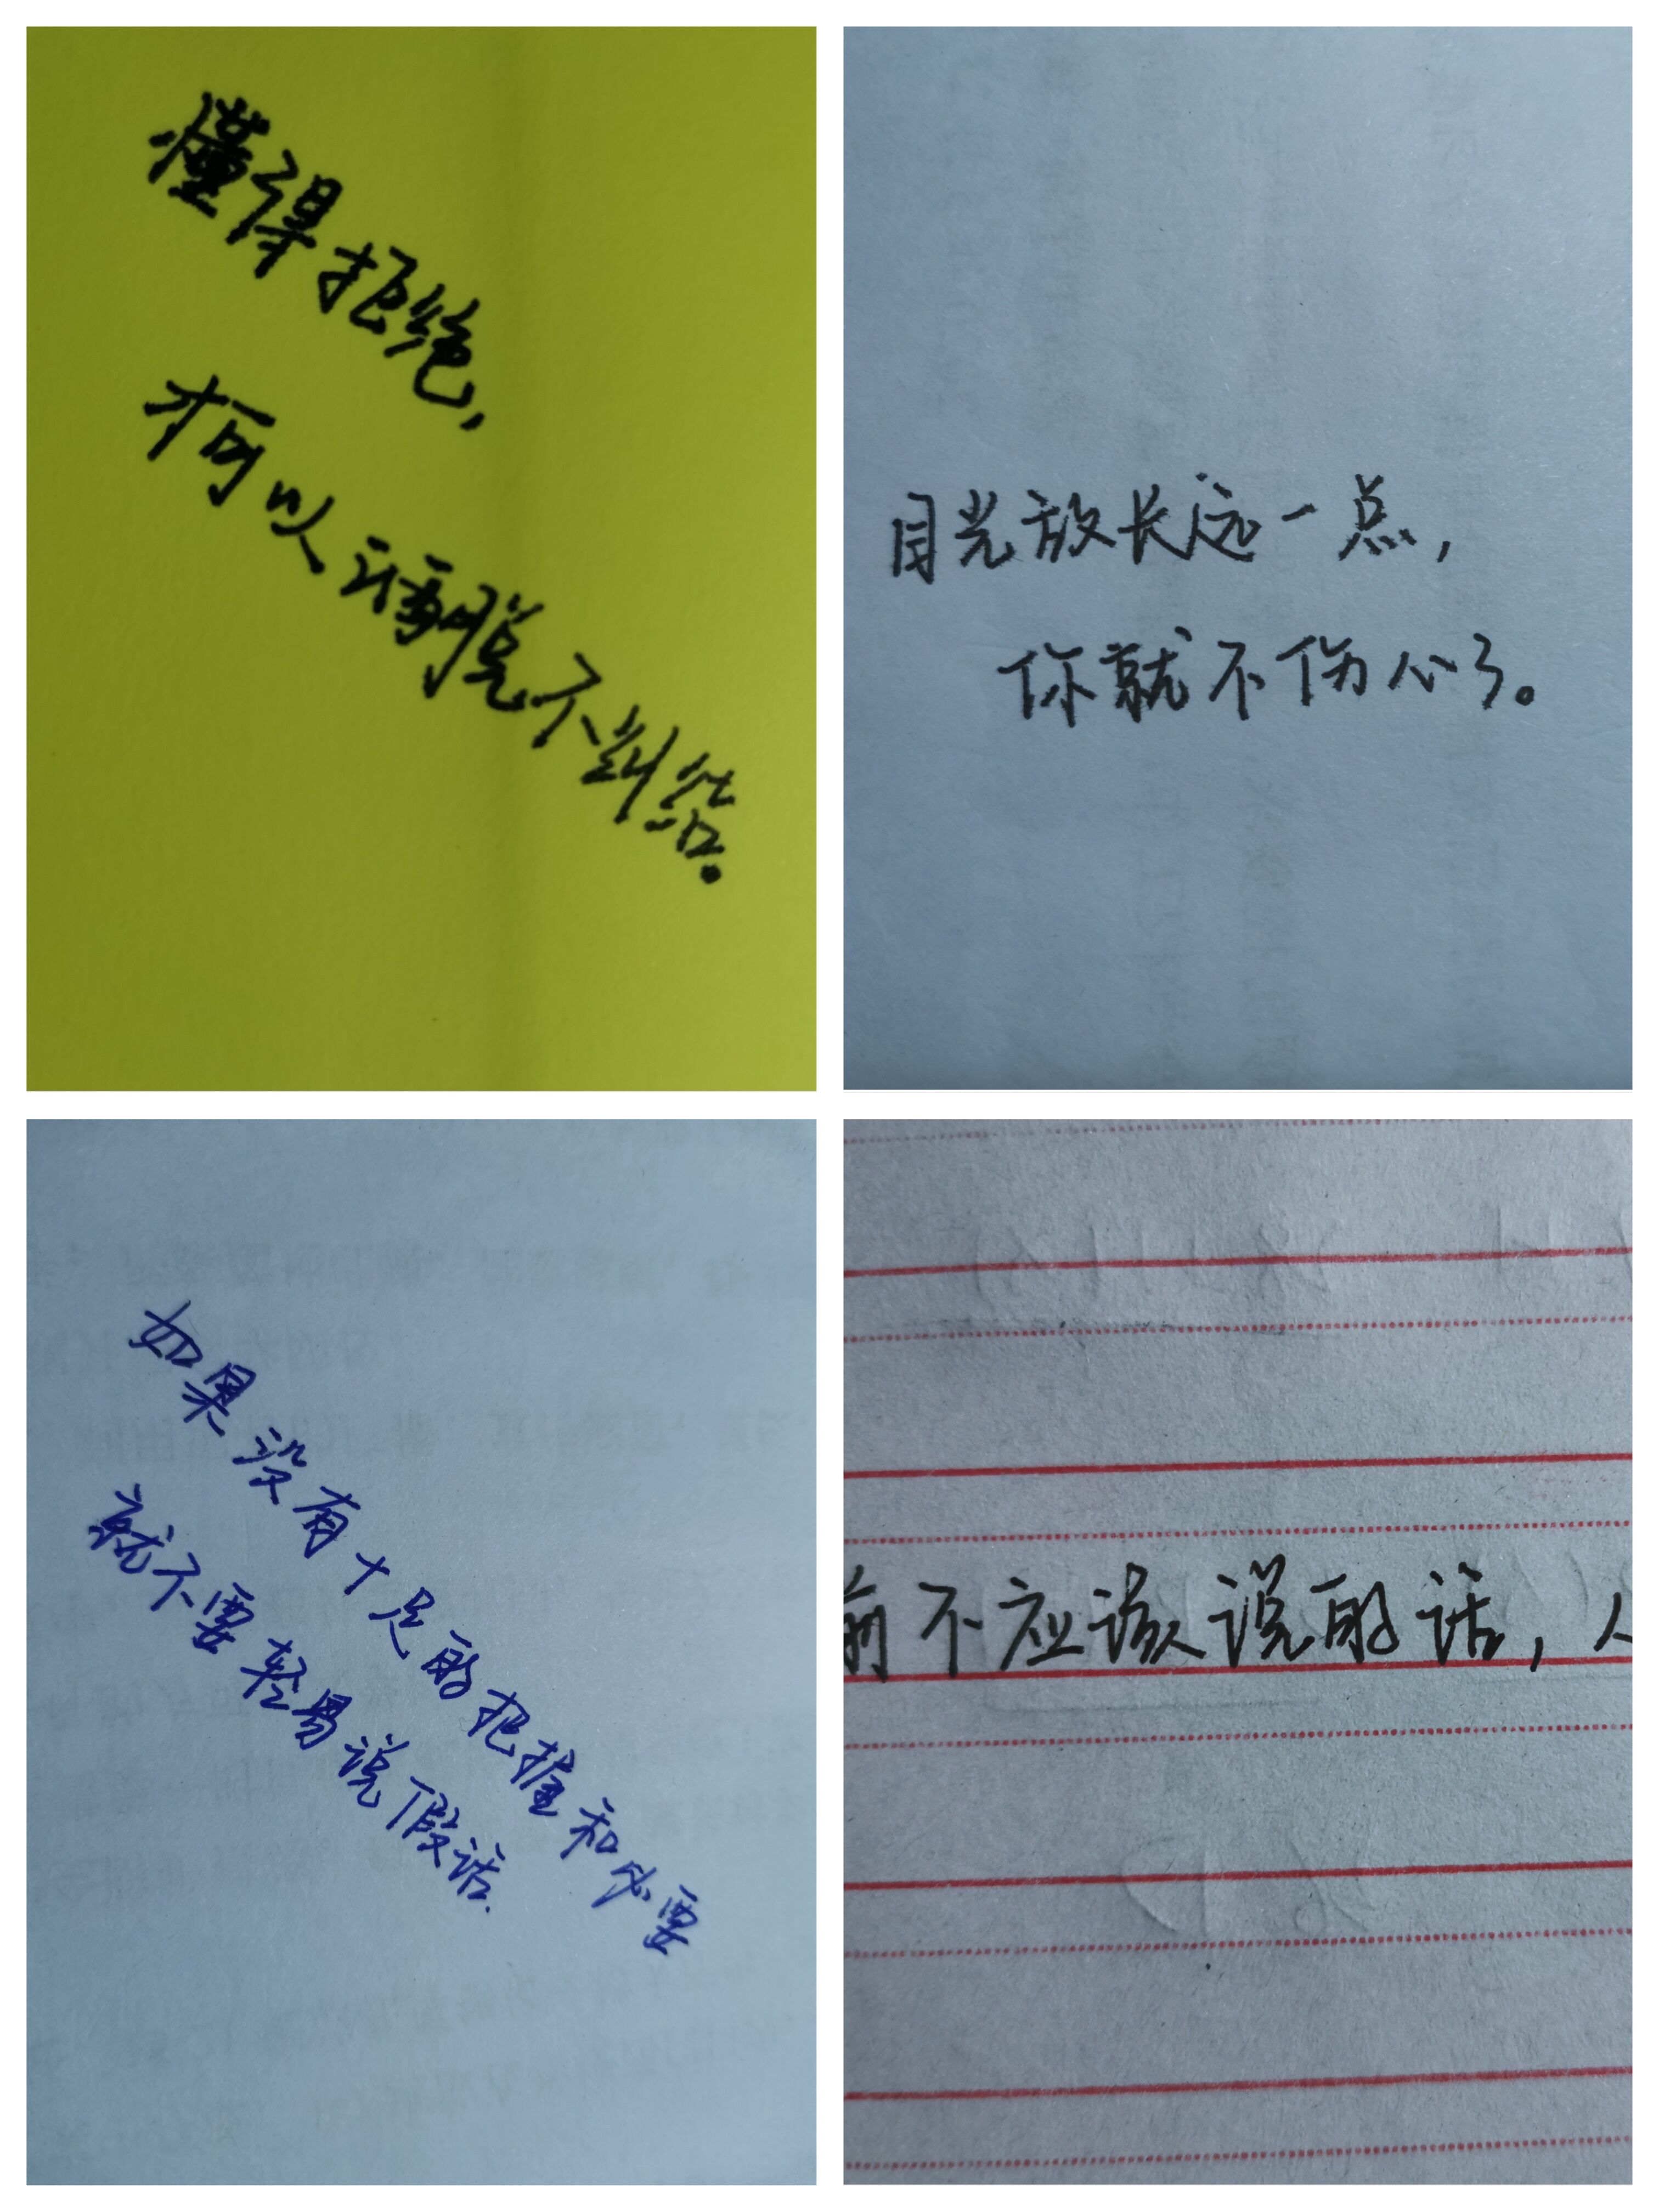 懂得拒绝，
才可以脱不纠结。
目光放长远一点，
你就不伤心了。
如果没有十足的把握和必要
就不要轻易说假话.
前不应该说的话，人